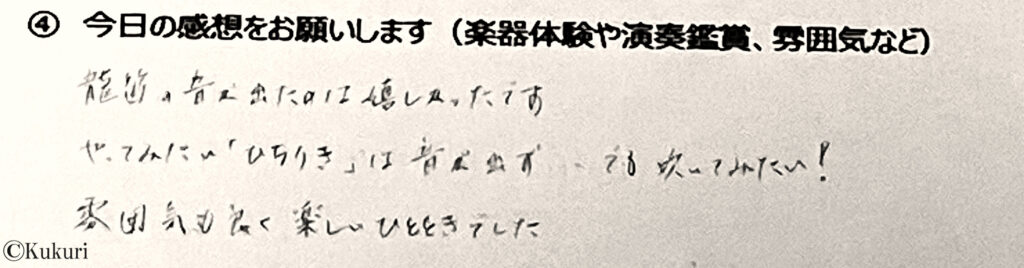 ④ 今日の感想をお願いします（楽器体験や演奏鑑賞、雰囲気など）
龍笛の音が出たのは嬉しかったです
やってみたい「ひちりき」は音が出ず‥でも吹いてみたい！
雰囲気も良く楽しいひとときでした
©Kukuri